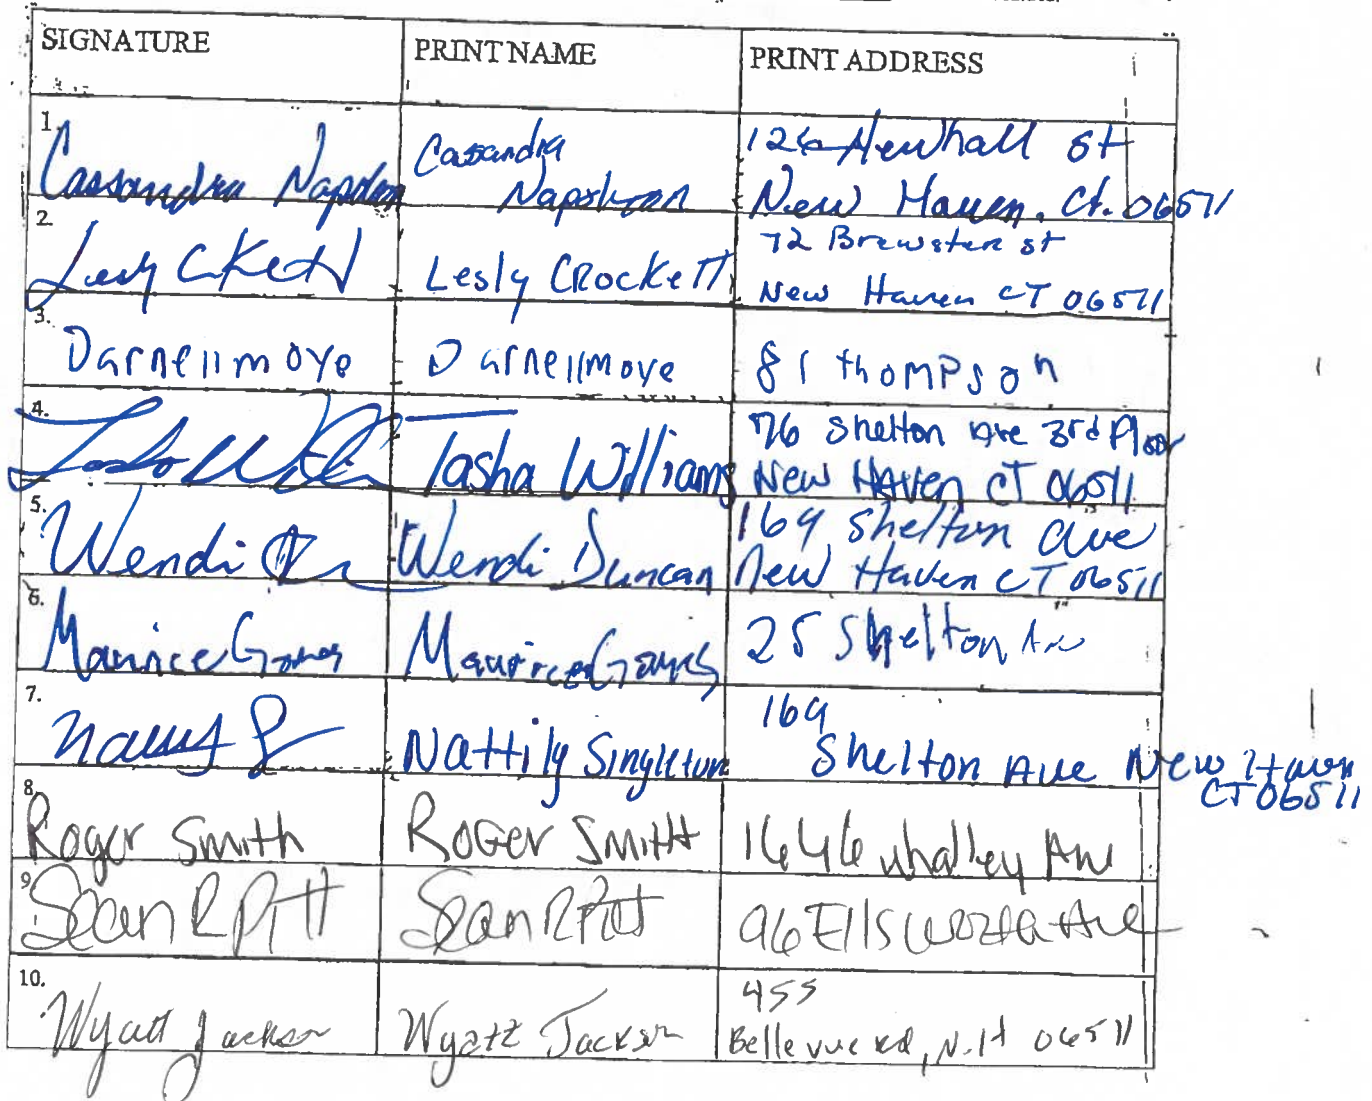 SIGNATURE PRINT NAME PRINT ADDRESS
1. Cassandra Napoleon Cassandra Napoleon 126 Newhall St
New Haven. Ct. 06511
2. Lesly Crockett 72 Brewster st
New Haven CT 06511
3. Darnell moye Darnell moye 81 thompson
4. Tasha Williams 76 Shelton Ave 3rd Floor
New Haven CT 06511
5. Wendi Wendi Duncan 169 Shelton ave
New Haven CT 06511
6. Maurice Maurice 25 Shelton Av
7. Nattily Singleton 169
Shelton Ave New Haven
CT 06511
8. Roger Smith ROGER SMITH 1646 Whalley Av
9. Sean R Pitt Sean R Pitt 96 Ellsworth Ave
10. Wyatt Jackson Wyatt Jackson 455
Bellevue Rd, N.H 06511